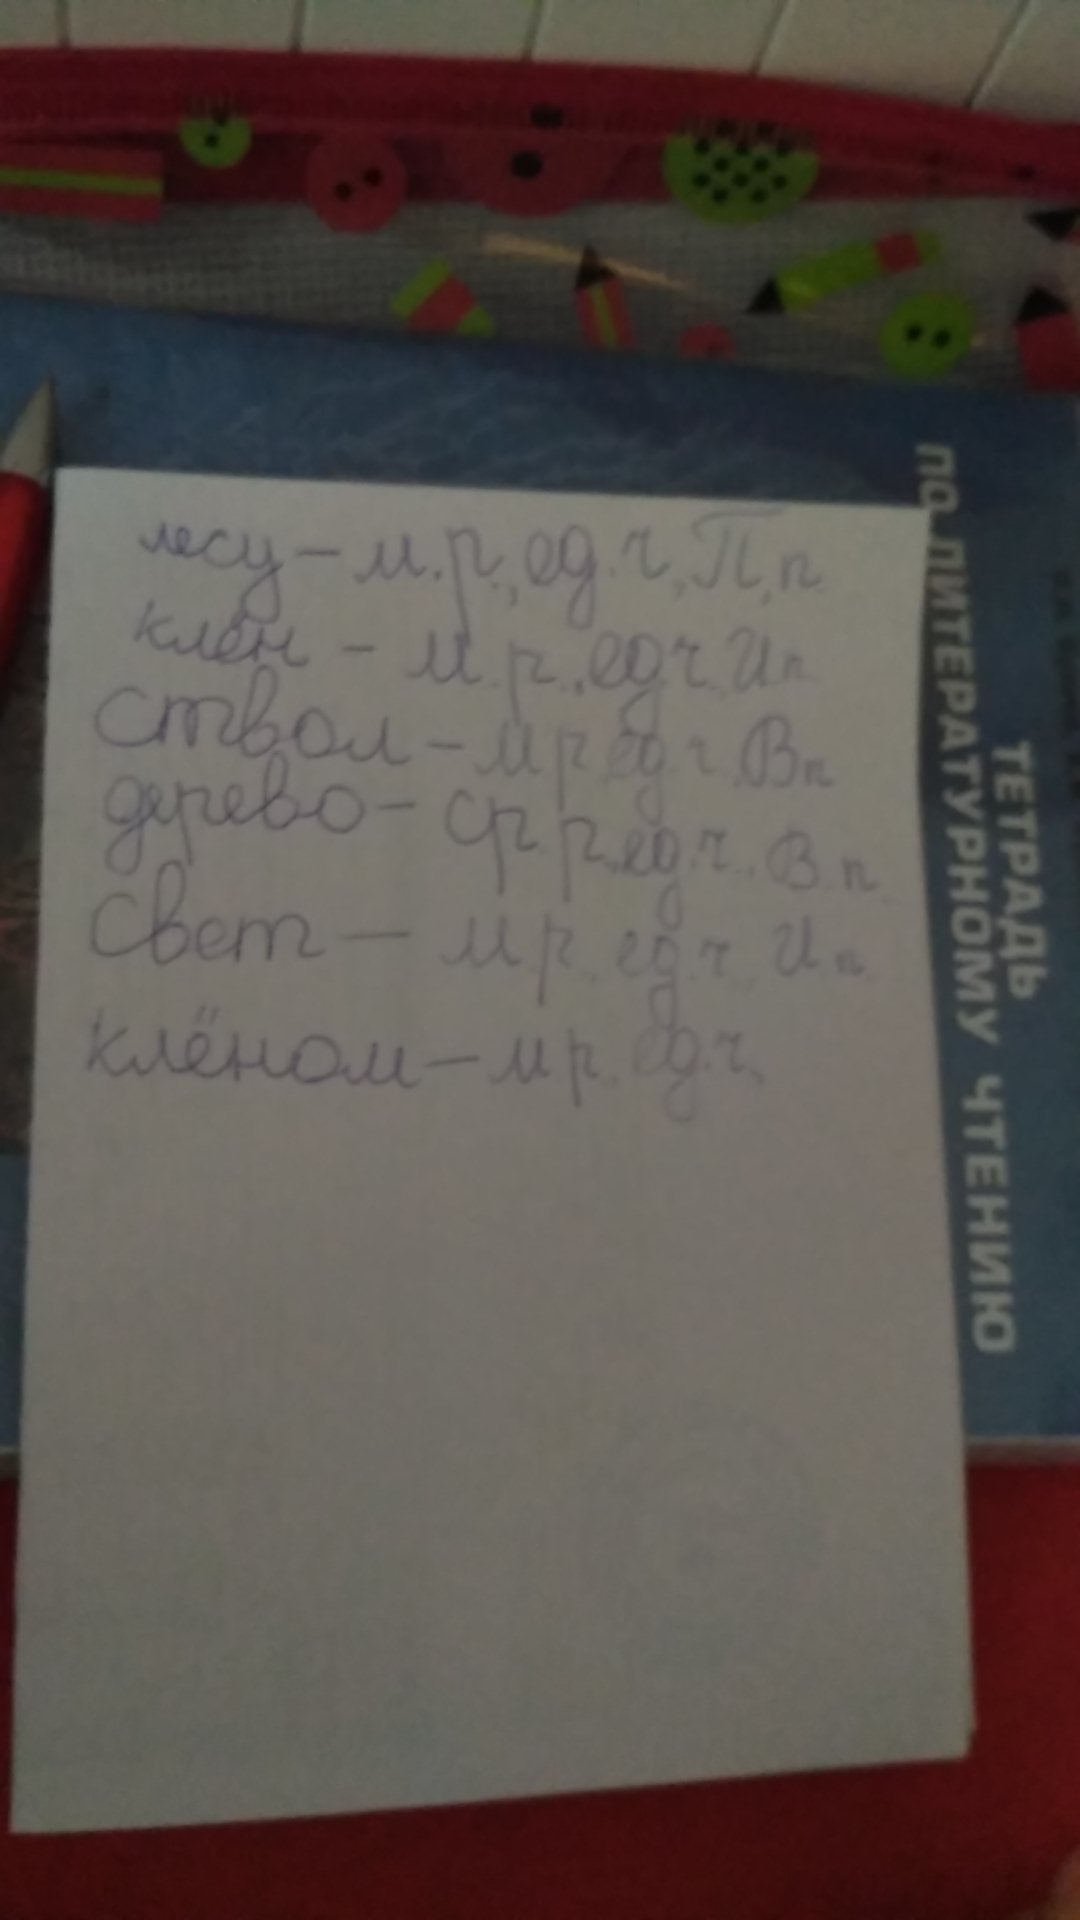 лесу – м.р., ед.ч., П.п.
клён – м.р., ед.ч. И.п.
ствол – м.р. ед.ч. В.п.
дерево – ср.р., ед.ч. В.п.
свет – м.р. ед.ч. И.п.
клёном – м.р. ед.ч.
ТЕТРАДЬ
ПО ЛИТЕРАТУРНОМУ ЧТЕНИЮ